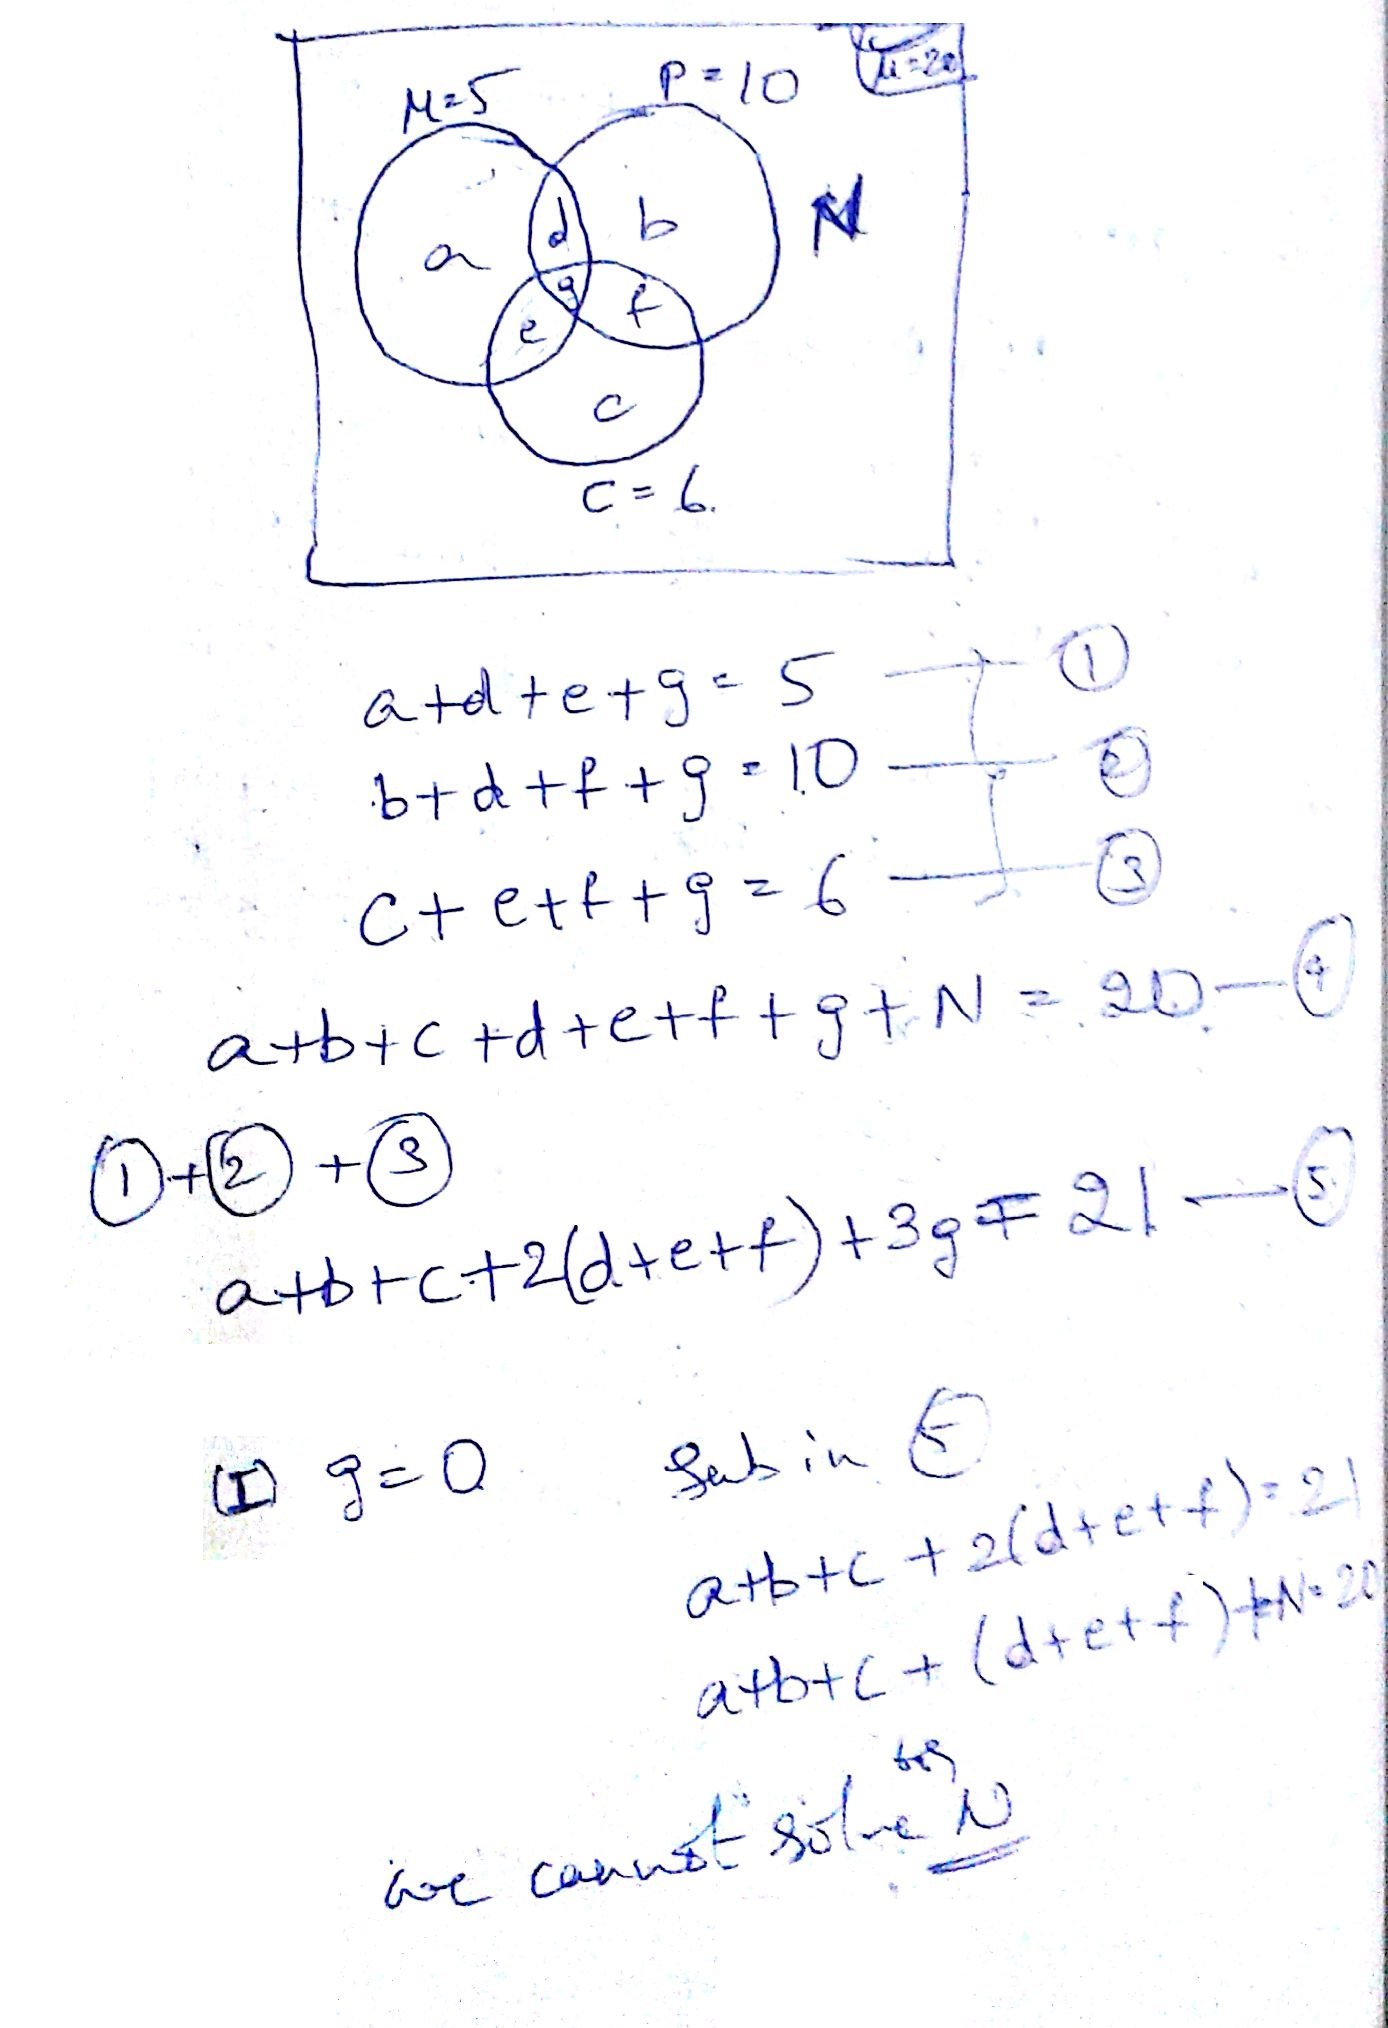 M=5 P=10 μ=20
a d b N
g
e f
c
C=6.
a+d+e+g=5 — ①
b+d+f+g=10 — ②
C+e+f+g=6 — ③
a+b+c+d+e+f+g+N=20 — ④
①+②+③
a+b+c+2(d+e+f)+3g=21 — ⑤
(I) g=0 Sub in ⑤
a+b+c+2(d+e+f)=21
a+b+c+(d+e+f)+N=20
for
we cannot solve N